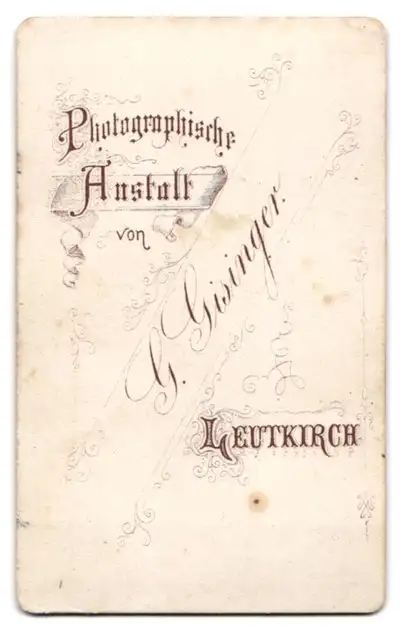 Photographische
Anstalt
von
G. Gisinger.
LEUTKIRCH